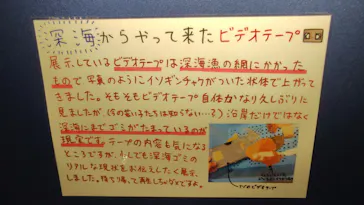 深海からやって来たビデオテープ
展示しているビデオテープは深海漁の網にかかった
もので写真のようにイソギンチャクがついた状態で上がって
きました。そもそもビデオテープ自体かなり久しぶりに
見ましたが、(今の若い子たちは知らない…?)沿岸だけではなく
深海にまでゴミがたまっているのが
現実です。テープの内容も気になる
ところですが、少しでも深海ゴミの
リアルな現状をお伝えしたく展示
しました。持ち帰って再生しちゃダメですよ。